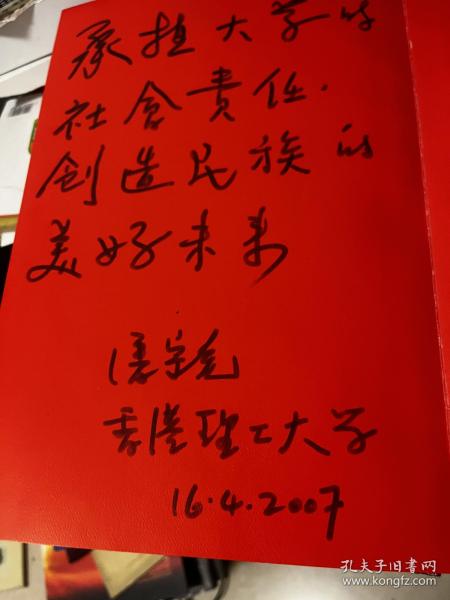 承担大学的
社會責任.
創造民族的
美好未来
潘宗光
香港理工大学
16.4.2007
孔夫子旧书网
www.kongfz.com